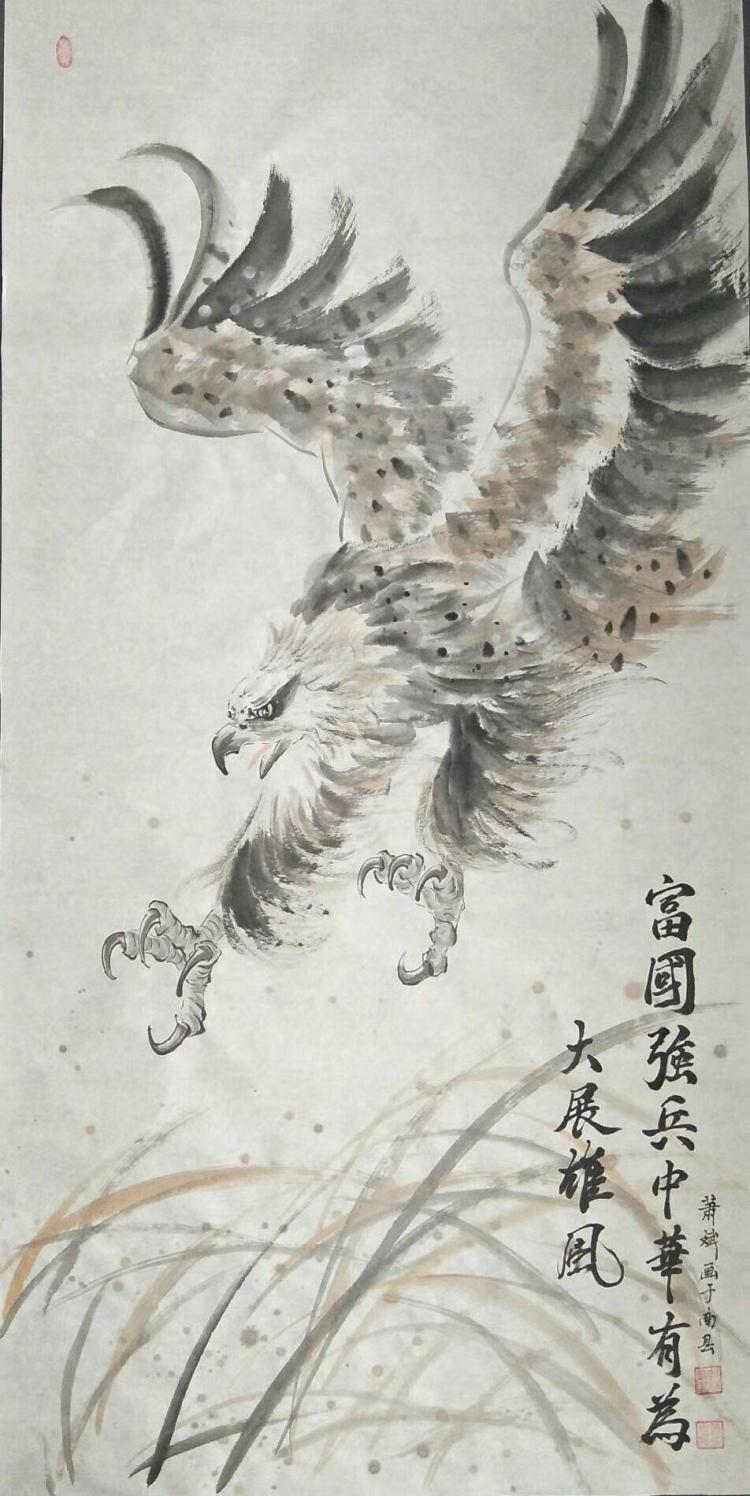 富國強兵中華有為
大展雄風
蕭斌画于南县